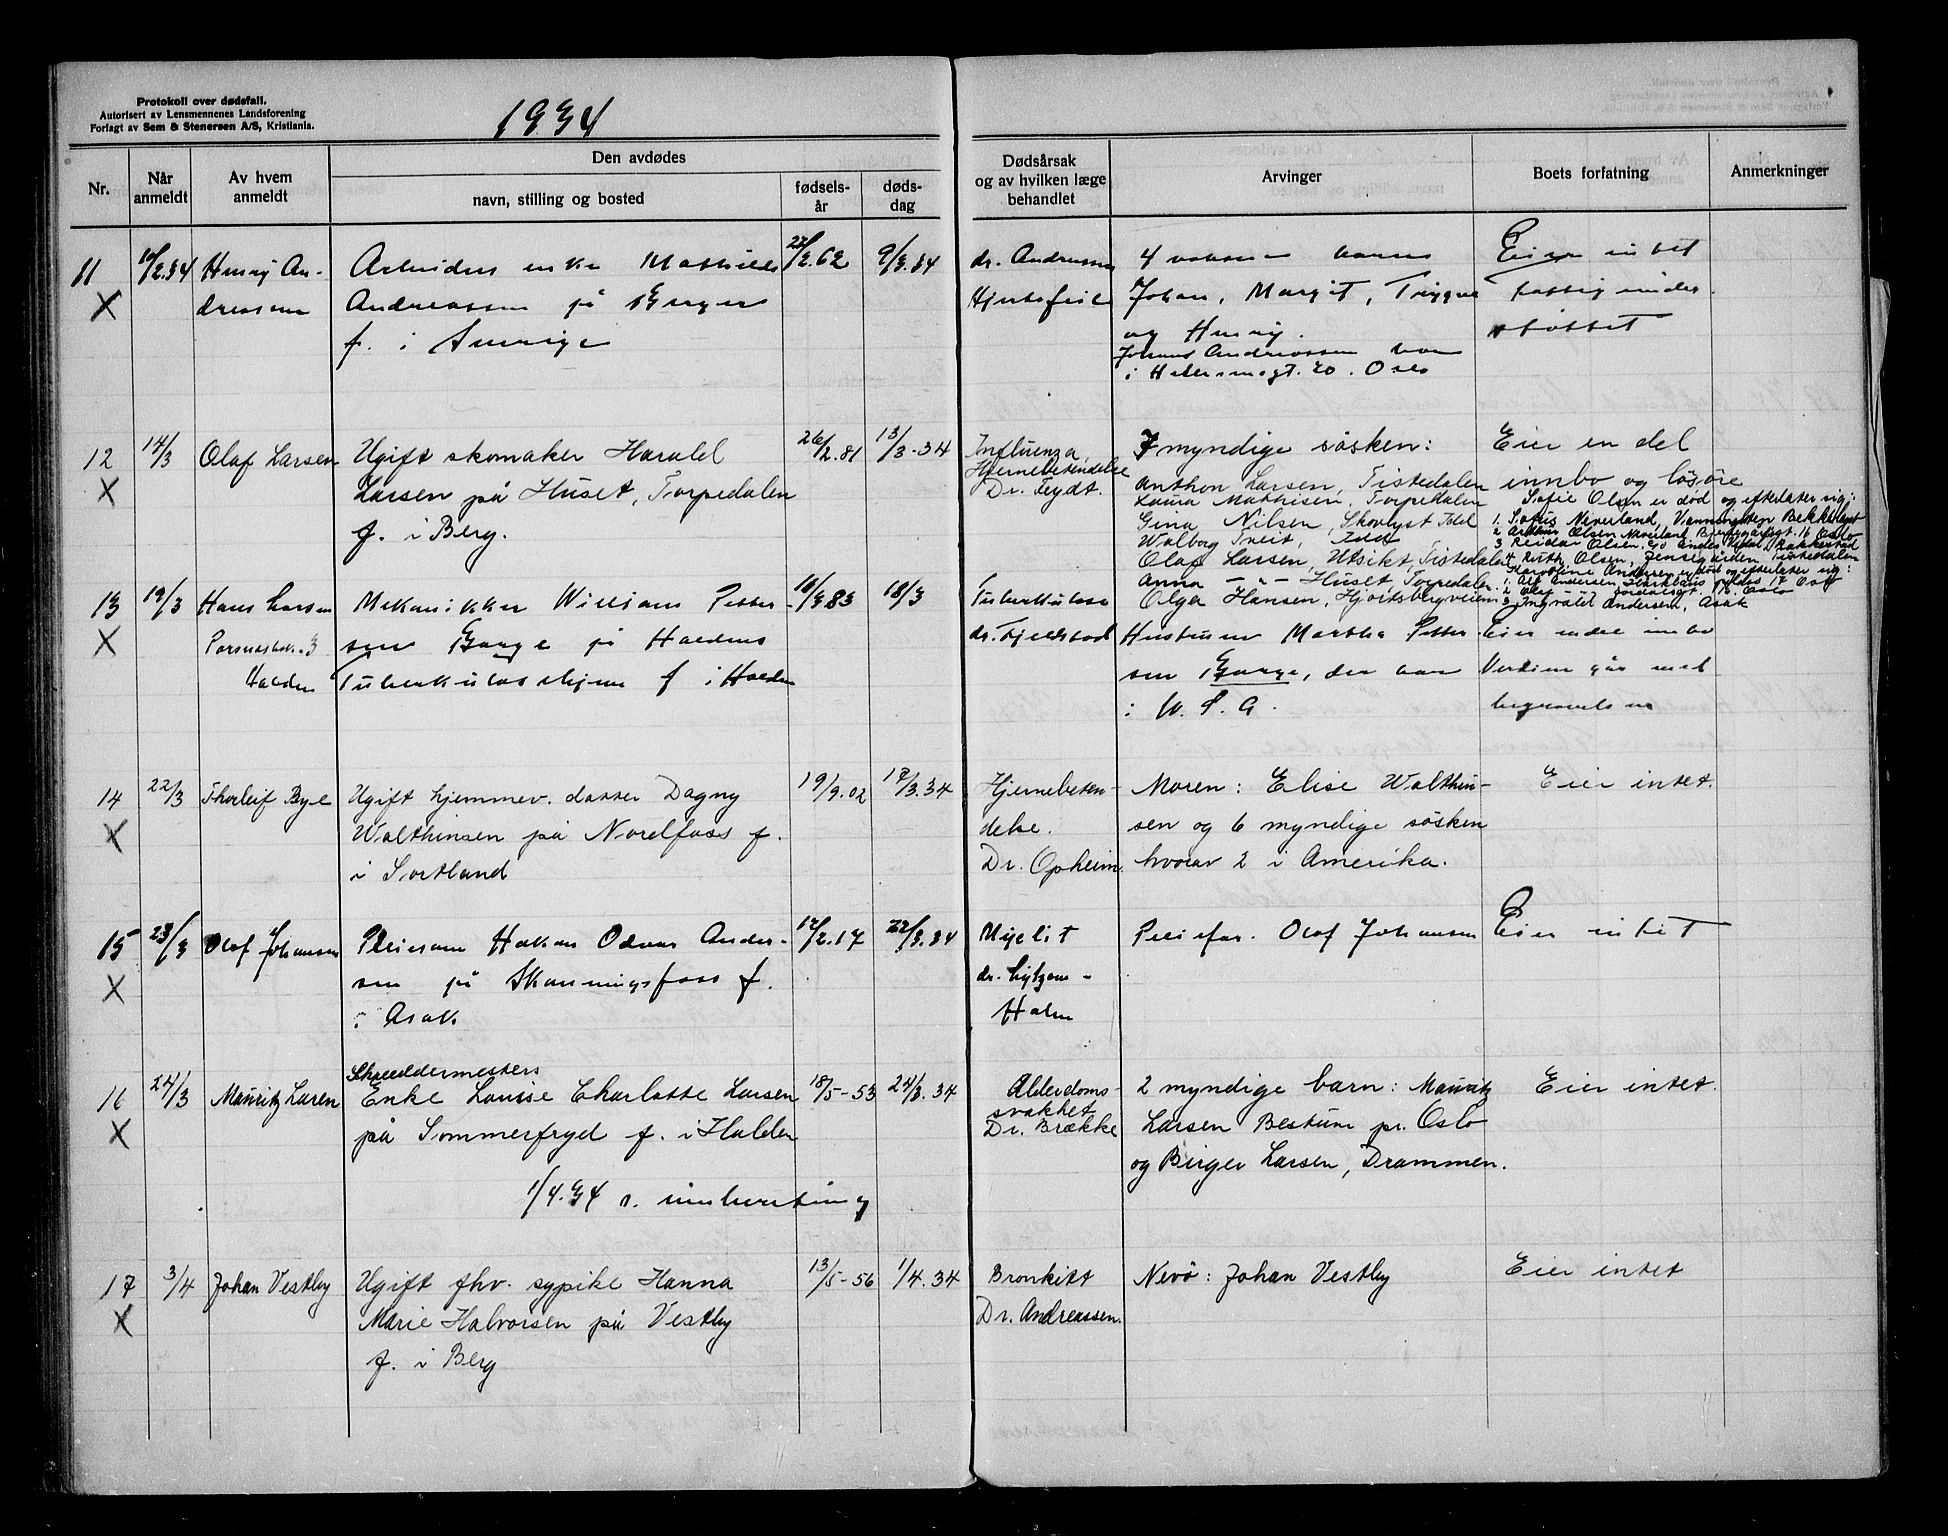 Protokoll over dødsfall.
Autorisert av Lensmennenes Landsforening
Forlagt av Sem & Stenersen A/S, Kristiania.
1934
Nr.
Når anmeldt
Av hvem anmeldt
Den avdødes
navn, stilling og bosted
fødselsår
dødsdag
Dødsårsak
og av hvilken læge
behandlet
Arvinger
Boets forfatning
Anmerkninger
11
10/3.34
Henry An-
dreassen
X
Arbeiders enke Mathilde
Andreassen på Berger
f. i Sverige
9/3.34
dr. Andreassen
Hjertefeil
4 voksne barn
Johan, Margit, Trygve
og Henry.
Johans Andreassen bor
i Oslo
Eier intet
fattigunder
støttet
12
14/3
Olaf Larsen
X
Ugift skomaker Harald
Larsen på Huset, Torpedalen
f. i Berg.
26/2.81
13/3.34
Influenza,
Hjernebetendelse
Dr. Feydt.
7 myndige søsken:
Anthon Larsen, Tistedalen
Laura Mathisen, Torpedalen
Gina Nilsen, Skovlyst Idd
Walborg Treit, Idd
Olaf Larsen, Utsikt, Tistedalen
Anna -"- Huset, Torpedalen
Olga Hansen, Hjortsbergveien
Eier en del
innbo og løsøre
Sofie Olsen er død og efterlater sig:
1. Sofus Neverland, Bekkelaget
2 Arthur Olsen 16 Oslo
3 Reidar Olsen, Rakkestad
4 Ruth Olsen, Jensegården, Tistedalen
Karoline Andersen, død og efterlater sig:
1. Alf Andersen 17 Oslo
2 Olaf -"- Oslo
3 Ingvald Andersen, Asak
13
19/3
Hans Larsen
Halden
X
Mekanikker William Petter-
sen Borge på Haldens
Tuberkuloseshjem f i Halden
10/3 83
18/3
Tuberkulose
dr. Fjeldstad
Hustruen Martha Petter-
sen Borge, der bor
i U. S. A.
Eier endel inbo
Verdien går med
begravelsen
14
22/3
Thorleif Bye
X
Ugift hjemmev. datter Dagny
Walthinsen på Norelfoss f.
i Sortland
19/9.02
17/3.34
Hjernebeten-
delse.
Dr. Opheim.
Moren: Elise Walthin-
sen og 6 myndige søsken
hvorav 2 i Amerika.
Eier intet.
15
23/3
Olaf Johansen
X
Pleiesønn Håkon Odvar Ander-
sen på Skonningsfoss f.
i Asak
12/2.17
22/3.34
Myelit
dr. Lytzow-
Holm
Pleiefar. Olaf Johansen
Eier intet
16
24/3
Mauritz Larsen
X
Skreddermesters
Enke Louise Charlotte Larsen
på Sommerfryd f. i Halden
18/5-53
24/3.34
Alderdoms-
svakhet
Dr. Brække
2 myndige barn: Mauritz
Larsen Bestum pr. Oslo
og Birger Larsen, Drammen.
Eier intet.
1/4.34 s. innberetning
17
3/4
Johan Vestby
X
Ugift fhv. sypike Hanna
Marie Halvorsen på Vestby
f. i Berg
13/5-56
1/4.34
Bronkitt
Dr. Andreassen.
Nevø: Johan Vestby
Eier intet